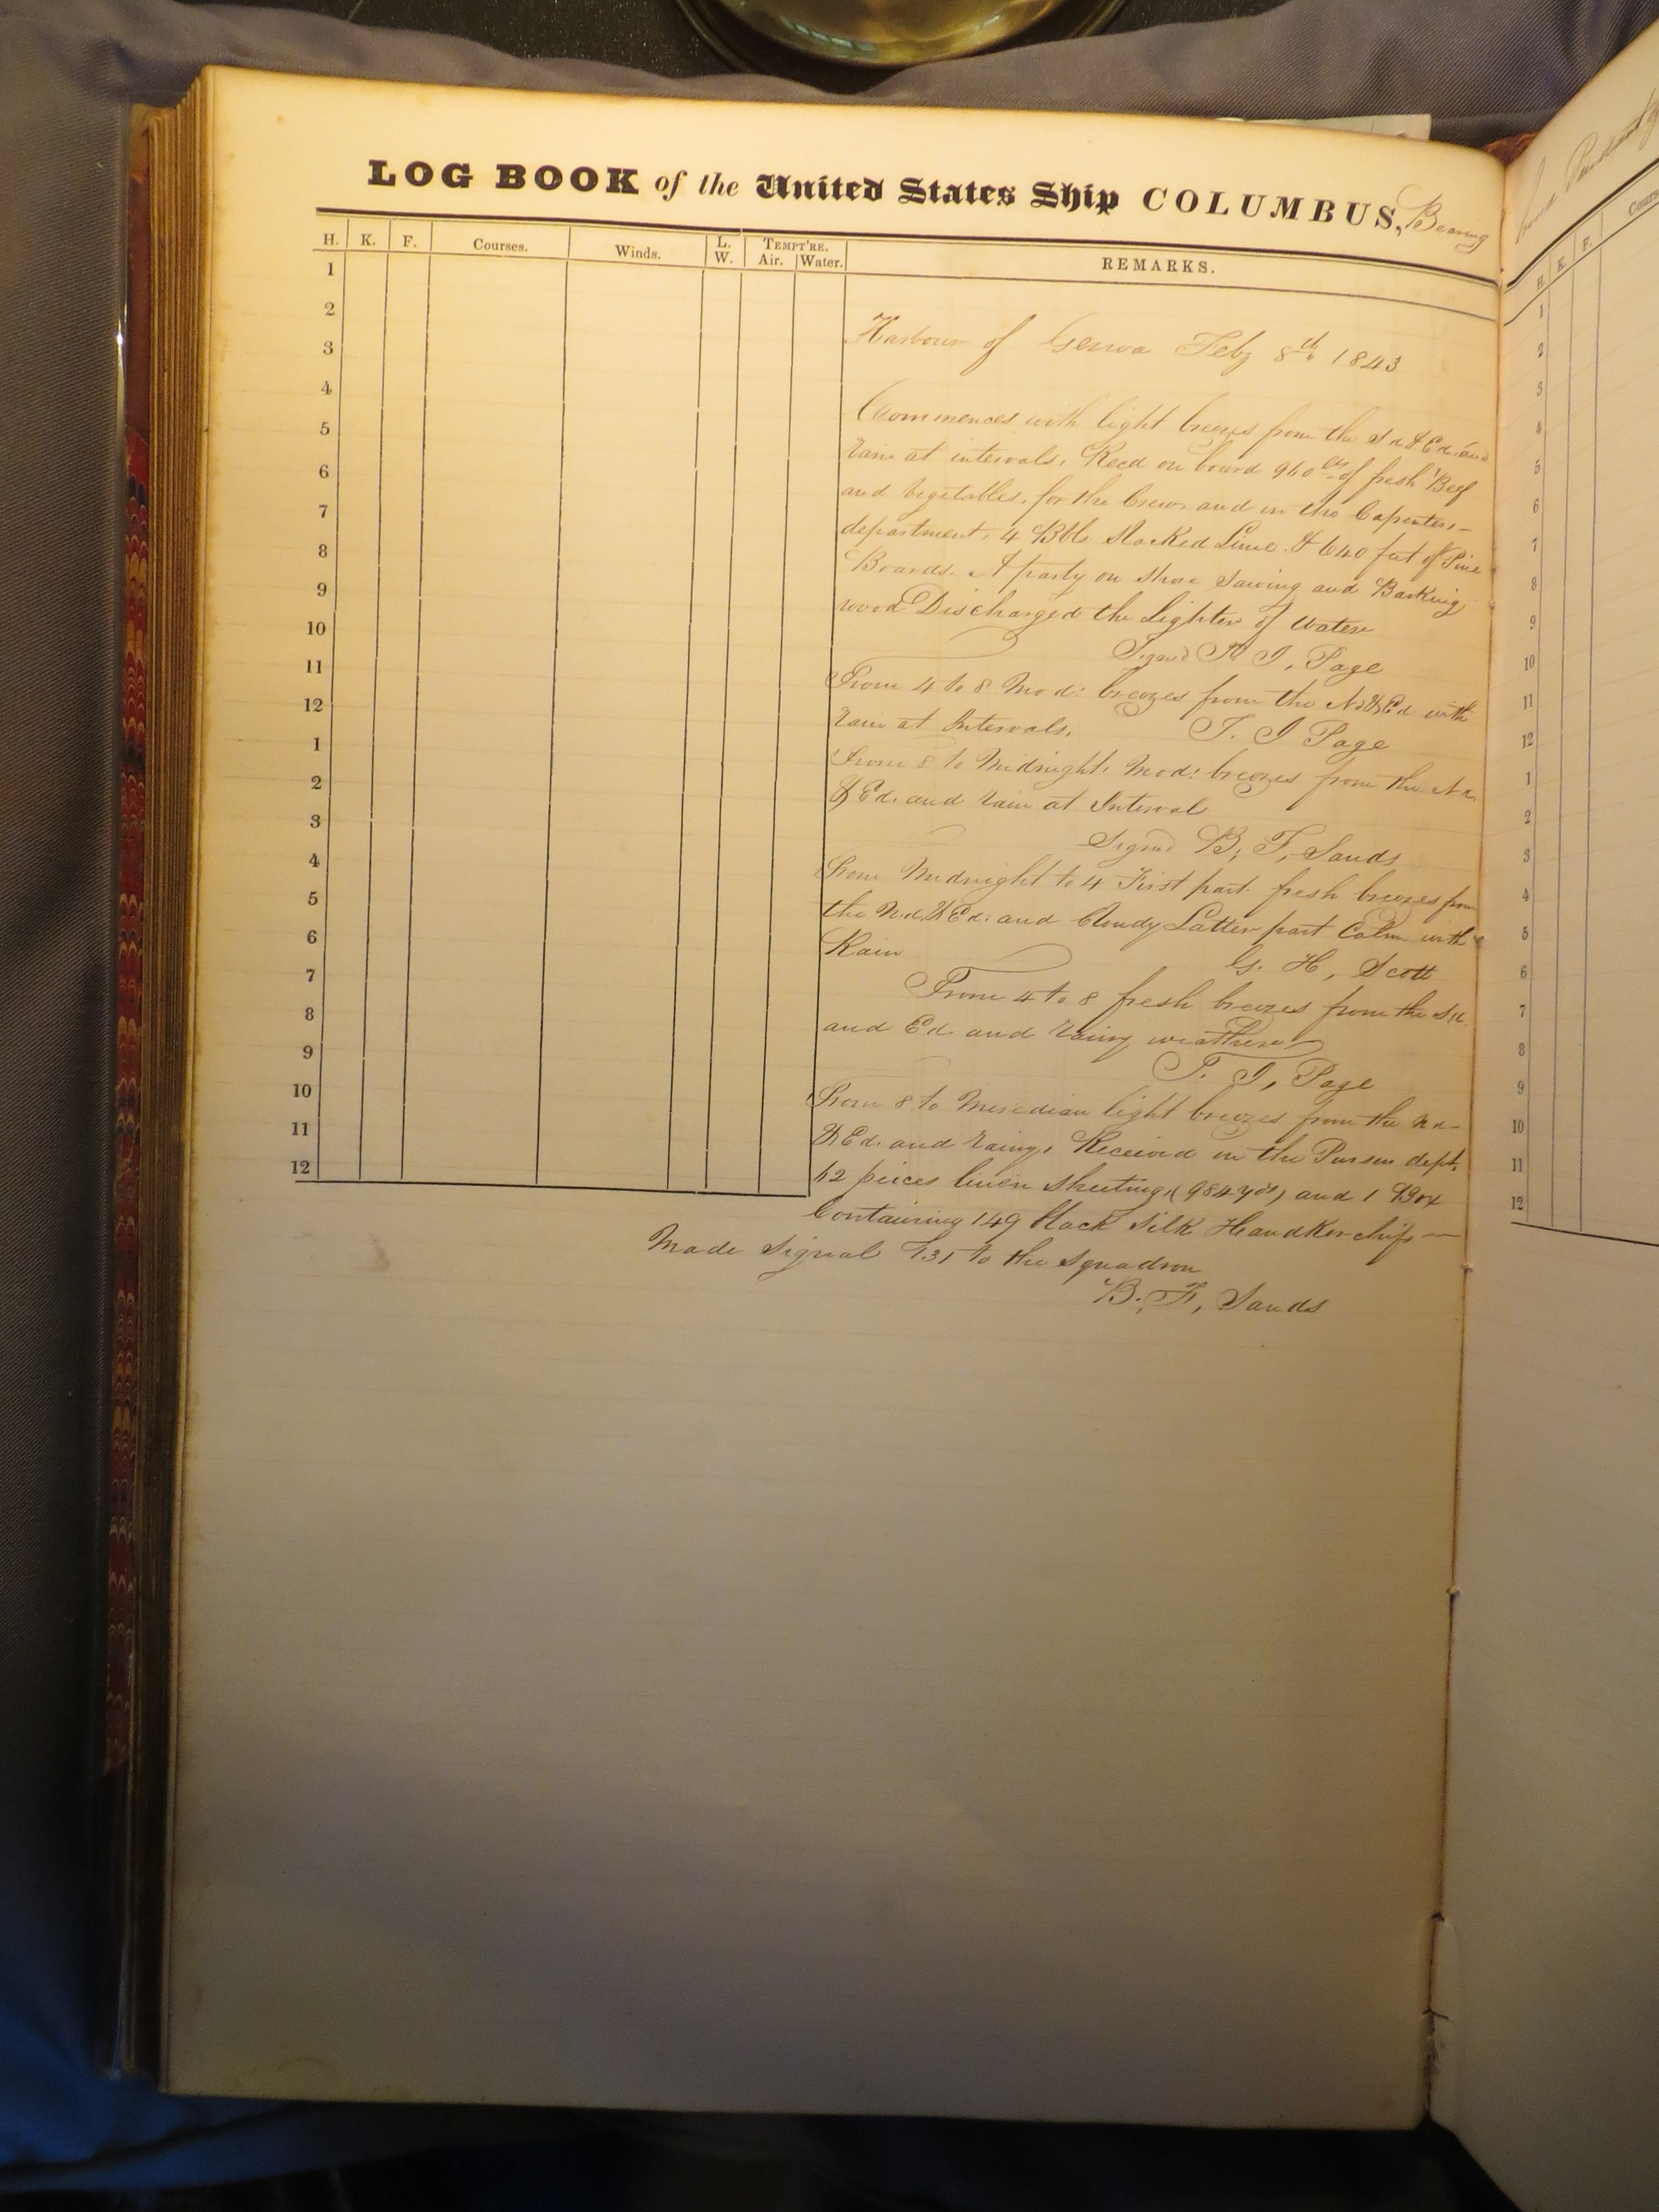 LOG BOOK of the United States Ship COLUMBUS, Bearing
H. K. F. Courses. Winds. L. W. TEMPT'RE. Air. Water. REMARKS.
1
2
3
4
5
6
7
8
9
10
11
12
1
2
3
4
5
6
7
8
9
10
11
12
Harbour of Genoa Feby 8th 1843
Commences with light breezes from the Sd & Ed. and
rain at intervals. Recd on board 960 lbs of fresh Beef
and Vegetables, for the Crew and in the Capenters
department, 4 Bbls Slacked Lime & 640 feet of Pine
Boards. A party on shore sawing and Barking
wood Discharged the Lighter of Water
Signed T. J. Page
From 4 to 8 Mod: breezes from the Nd & Ed with
rain at Intervals. T. J Page
From 8 to Midnight. Mod: breezes from the Nd.
& Ed. and rain at Interval
Signed B, F, Sands
From Midnight to 4 First part fresh breezes from
the Nd. & Ed: and Cloudy Latter part Calm with
Rain G. H, Scott
From 4 to 8 fresh breezes from the Sd.
and Ed. and rainy weather
T. J, Page
From 8 to Meredian light breezes from the Nd-
& Ed. and rainy, Received in the Purser dept.
12 peices linen sheeting, (984 yds) and 1 Box
Containing 149 black Silk Handkerchifs—
Made Signal 731 to the squadron
B. F, Sands
H. K. F. Cours
1
2
3
4
5
6
7
8
9
10
11
12
1
2
3
4
5
6
7
8
9
10
11
12